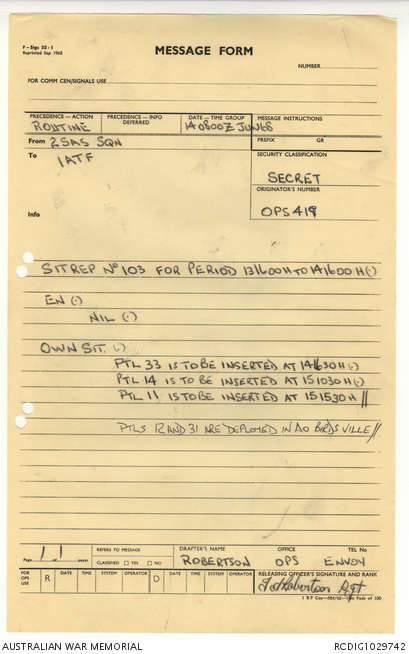 F—Sigs 35-1
Reprinted Sep 1963
MESSAGE FORM
NUMBER
FOR COMM CEN/SIGNALS USE
PRECEDENCE—ACTION PRECEDENCE—INFO DEFERRED DATE—TIME GROUP MESSAGE INSTRUCTIONS
ROUTINE 140800Z JUN68
From 2 SAS SQN PREFIX GR
To 1ATF SECURITY CLASSIFICATION
SECRET
ORIGINATOR'S NUMBER
Info OPS 419
SITREP No 103 FOR PERIOD 131600H TO 141600H (·)
EN (·)
NIL (·)
OWN SIT (·)
PTL 33 IS TO BE INSERTED AT 141630H (·)
PTL 14 IS TO BE INSERTED AT 151030H (·)
PTL 11 IS TO BE INSERTED AT 151530H //
PTLS 12 AND 31 ARE DEPLOYED IN AO BIRDSVILLE //
Page 1 / 1 REFERS TO MESSAGE DRAFTER'S NAME OFFICE TEL No
CLASSIFIED □ YES □ NO ROBERTSON OPS ENVOY
FOR OPS USE R DATE TIME SYSTEM OPERATOR D DATE TIME SYSTEM OPERATOR RELEASING OFFICER'S SIGNATURE AND RANK
Robertson Sgt
Pads of 100
AUSTRALIAN WAR MEMORIAL RCDIG1029742